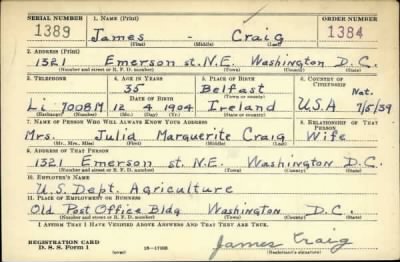 SERIAL NUMBER 1. NAME (Print) ORDER NUMBER
1389 James - Craig 1384
(First) (Middle) (Last)
2. ADDRESS (Print)
1321 Emerson st. N.E. Washington D.C.
(Number and street or R. F. D. number) (Town) (County) (State)
3. TELEPHONE 4. AGE IN YEARS 5. PLACE OF BIRTH 6. COUNTRY OF CITIZENSHIP
35 Belfast Nat.
DATE OF BIRTH (Town or county)
Li 7008M 12 4 1904 Ireland U.S.A 7/5/39
(Exchange) (Number) (Mo.) (Day) (Yr.) (State or country)
7. NAME OF PERSON WHO WILL ALWAYS KNOW YOUR ADDRESS 8. RELATIONSHIP OF THAT PERSON
Mrs. Julia Marguerite Craig Wife
(Mr., Mrs., Miss) (First) (Middle) (Last)
9. ADDRESS OF THAT PERSON
1321 Emerson st. N.E. Washington D.C.
(Number and street or R. F. D. number) (Town) (County) (State)
10. EMPLOYER'S NAME
U.S. Dept. Agriculture
11. PLACE OF EMPLOYMENT OR BUSINESS
Old Post Office Bldg Washington D.C.
(Number and street or R. F. D. number) (Town) (County) (State)
I AFFIRM THAT I HAVE VERIFIED ABOVE ANSWERS AND THAT THEY ARE TRUE.
James Craig
REGISTRATION CARD
D. S. S. Form 1 (over) (Registrant's signature)